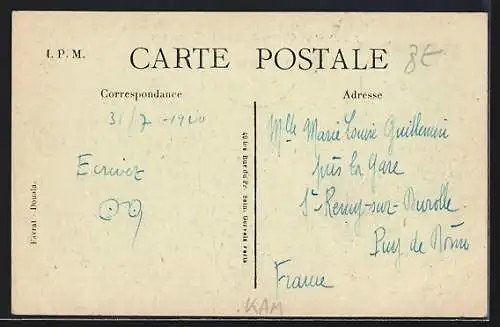 I. P. M.
CARTE POSTALE
8E
Correspondance
Adresse
31/7 -1920
Ecrivez
Mlle Marie Louise Guillemin
près la Gare
St-Remy-sur-Durolle
Puy de Dôme
France
KAM